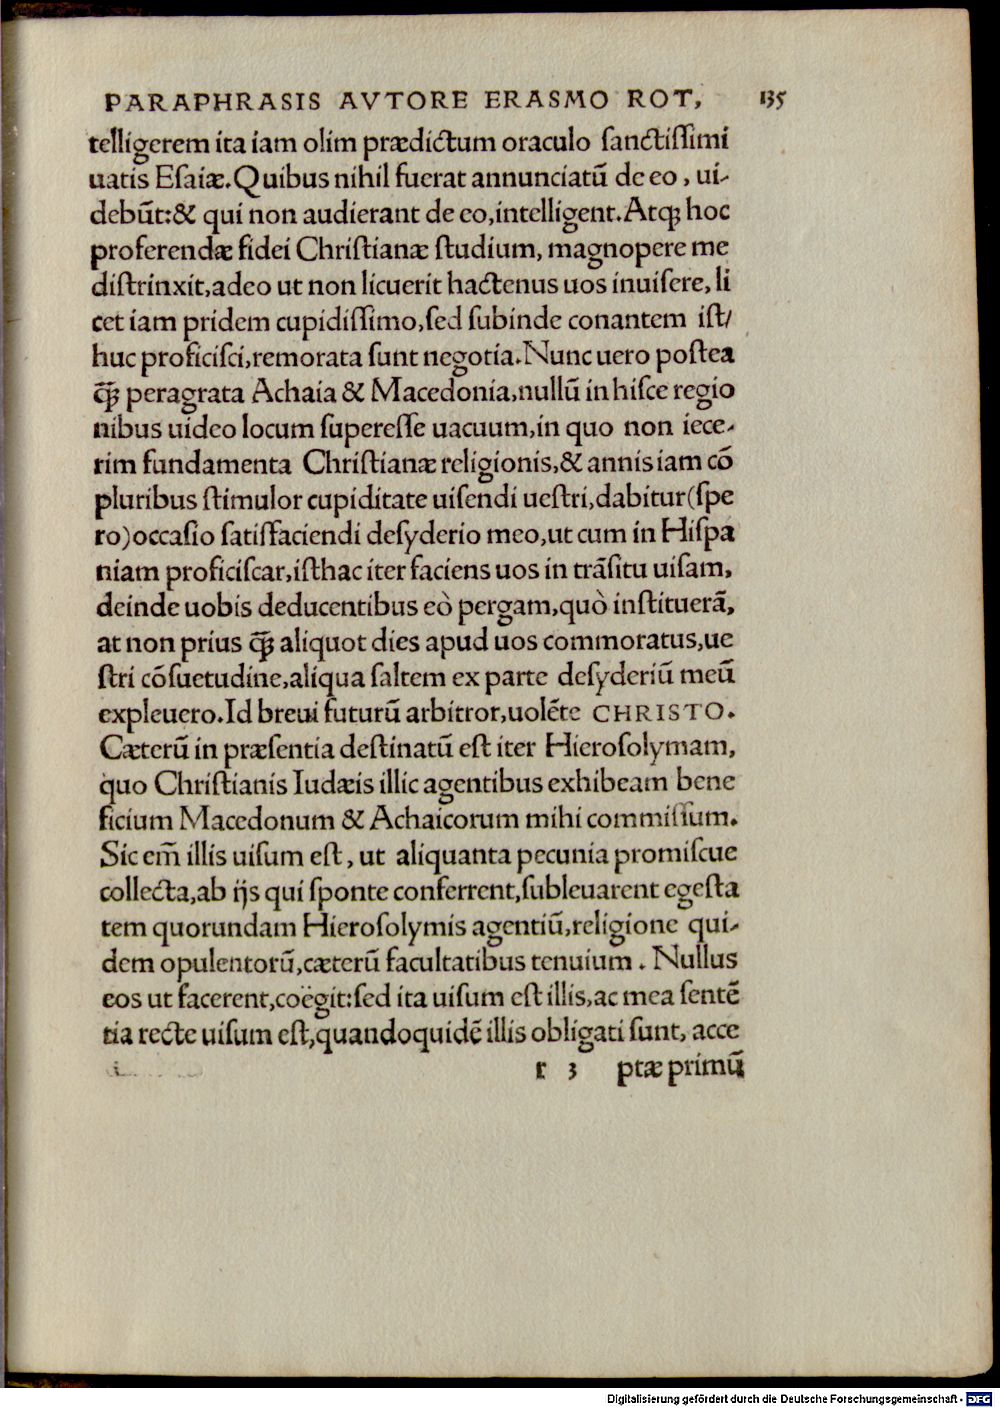 PARAPHRASIS AVTORE ERASMO ROT, 135
telligerem ita iam olim prædictum oraculo ſanctiſſimi
uatis Eſaiæ. Quibus nihil fuerat annunciatũ de eo, ui-
debũt: & qui non audierant de eo, intelligent. Atq; hoc
proferendæ fidei Chriſtianæ ſtudium, magnopere me
diſtrinxit, adeo ut non licuerit hactenus uos inuiſere, li
cet iam pridem cupidiſſimo, ſed ſubinde conantem iſt/
huc proficiſci, remorata ſunt negotia. Nunc uero poſtea
q̃; peragrata Achaia & Macedonia, nullũ in hiſce regio
nibus uideo locum ſupereſſe uacuum, in quo non iece-
rim fundamenta Chriſtianæ religionis, & annis iam cõ
pluribus ſtimulor cupiditate uiſendi ueſtri, dabitur (ſpe
ro) occaſio ſatiſfaciendi deſyderio meo, ut cum in Hiſpa
niam proficiſcar, iſthac iter faciens uos in trãſitu uiſam,
deinde uobis deducentibus eò pergam, quò inſtituerã,
at non prius q̃; aliquot dies apud uos commoratus, ue
ſtri cõſuetudine, aliqua ſaltem ex parte deſyderiũ meũ
expleuero. Id breui futurũ arbitror, uolẽte CHRISTO.
Cæterũ in præſentia deſtinatũ eſt iter Hieroſolymam,
quo Chriſtianis Iudæis illic agentibus exhibeam bene
ficium Macedonum & Achaicorum mihi commiſſum.
Sic em̃ illis uiſum eſt, ut aliquanta pecunia promiſcue
collecta, ab ijs qui ſponte conferrent, ſubleuarent egeſta
tem quorundam Hieroſolymis agentiũ, religione qui-
dem opulentorũ, cæterũ facultatibus tenuium. Nullus
eos ut facerent, coëgit: ſed ita uiſum eſt illis, ac mea ſentẽ
tia recte uiſum eſt, quandoquidẽ illis obligati ſunt, acce
r 3 ptæ primũ
Digitalisierung gefördert durch die Deutsche Forschungsgemeinschaft - DFG